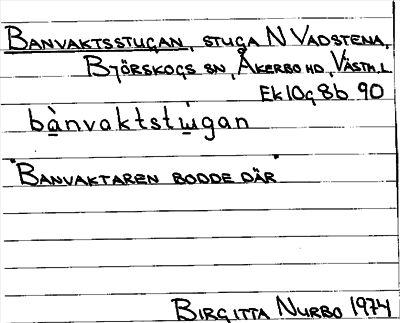 BANVAKTSSTUGAN, STUGA N VADSTENA,
BJÖRSKOGS SN, ÅKERBO HD, VÄSTM.L
Ek 10g 8b 90
bànvaktstùgan
"BANVAKTAREN BODDE DÄR"
BIRGITTA NURBO 1974